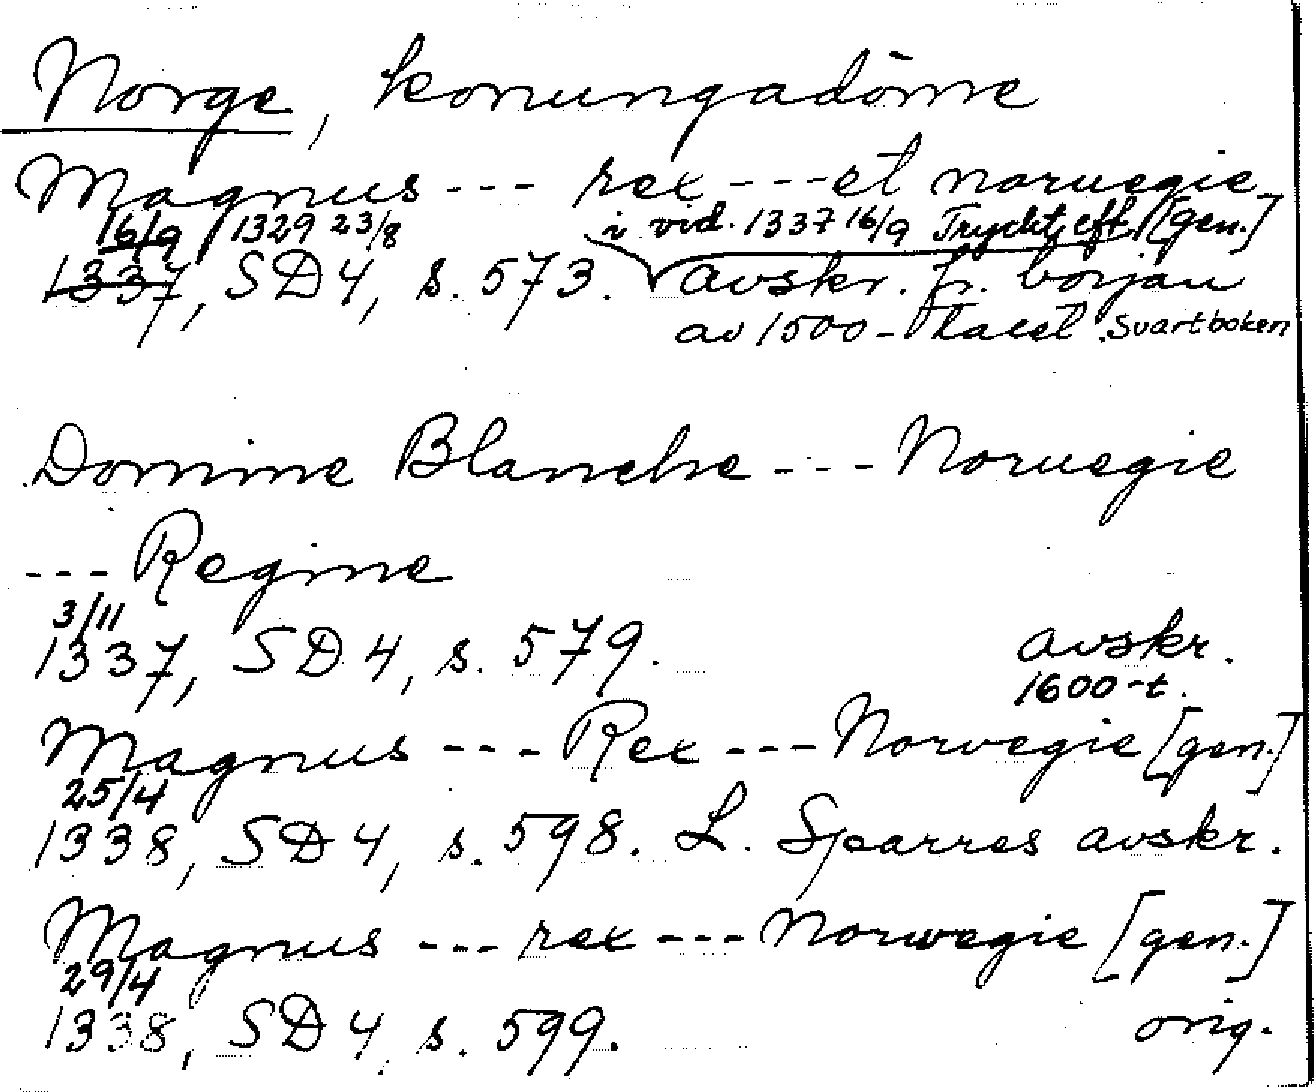 Norge, konungadöme
Magnus --- rex --- et noruegie [gen.]
16/9 1329 23/8 i vid. 1337 16/9 Tryckt eft.
1337, SD 4, s. 573. avskr. fr. början
av 1500-talet. Svartboken
Domine Blanche --- Noruegie
--- Regine
3/11
1337, SD 4, s. 579. avskr.
1600-t.
Magnus --- Rex --- Norvegie [gen.]
25/4
1338, SD 4, s. 598. L. Sparres avskr.
Magnus --- rex --- Norwegie [gen.]
29/4
1338, SD 4, s. 599. orig.